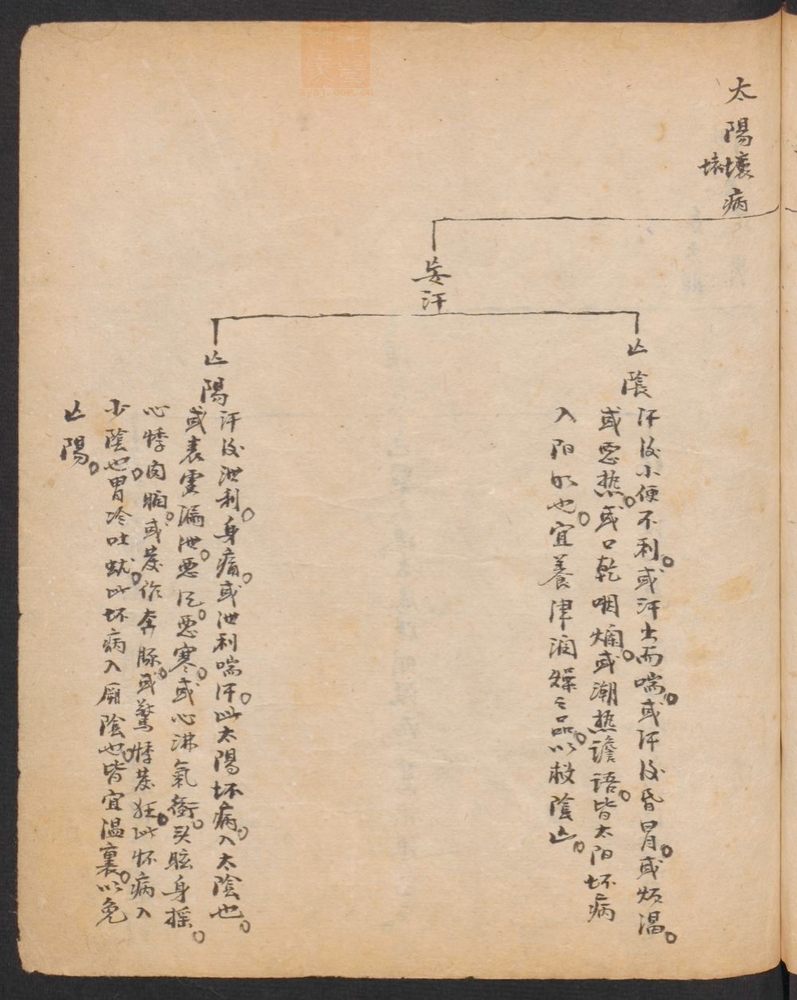 太陽壞病
坏
妄汗
亾陰
汗後小便不利。或汗出而喘。或汗後昏冒。或煩渴。
或惡热。或口乾咽爛。或潮热譫語。皆太阳坏病
入阳明也。宜養津潤燥之品。以救陰亾。
亾陽
汗後泄利。身痛。或泄利喘汗。此太陽坏病。入太陰也。
或表虛漏泄。惡風。惡寒。或心沸氣衝。頭眩身搖。
心悸肉瞤。或发作奔豚。或驚悸发狂。此坏病入
少陰也。胃冷吐蚘。此坏病入厥陰也。皆宜溫裏。以免
亾陽。